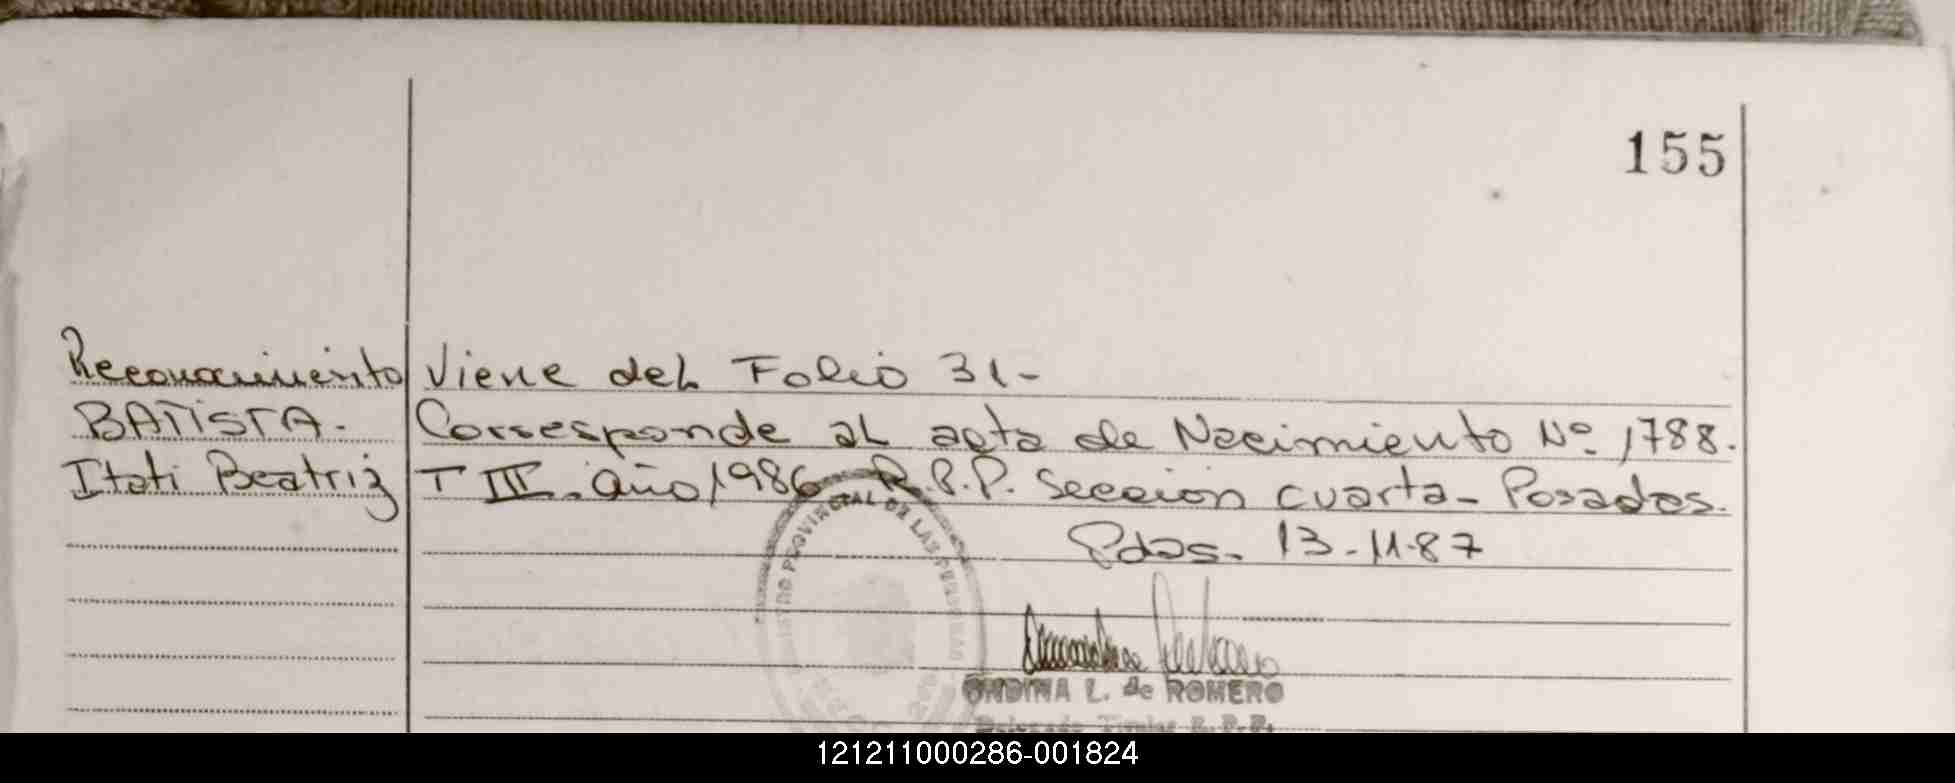 155
Reconocimiento
BATISTA.
Itati Beatriz
Viene del Folio 31-
Corresponde al acta de Nacimiento Nº 1788.
T III. año 1986 R.P.P. Sección cuarta- Posadas.
Pdas. 13-11-87
REGISTRO PROVINCIAL DE LAS PERSONAS
ONDINA L. de ROMERO
Delegada Titular R.P.P.
121211000286-001824